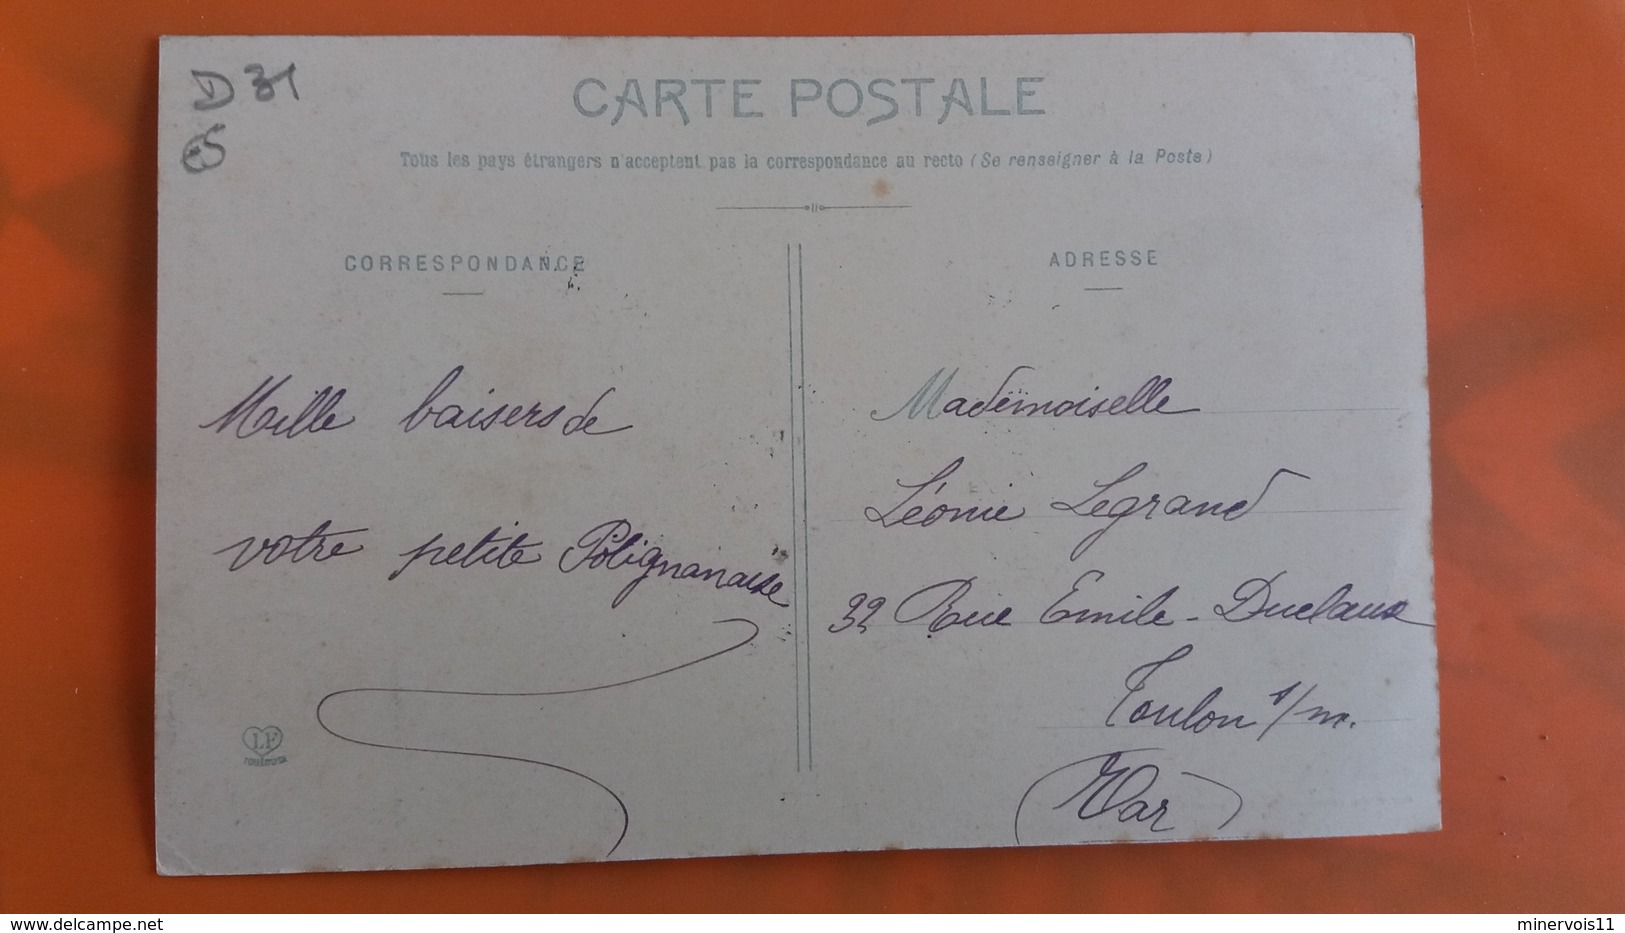 D 31
CARTE POSTALE
Tous les pays étrangers n'acceptent pas la correspondance au recto (Se renseigner à la Poste)
CORRESPONDANCE
Mille baisers de
votre petite Polignanaise
LF
TOULOUSE
ADRESSE
Mademoiselle
Léonie Legrand
32 Rue Emile-Duclaux
Toulon s/m.
(Var)
delcampe.net
minervois11